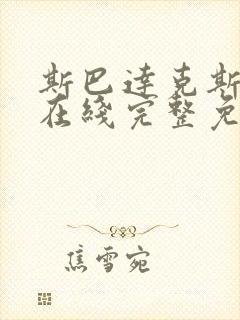 斯巴達克斯
在綫完整免
焦雪宛